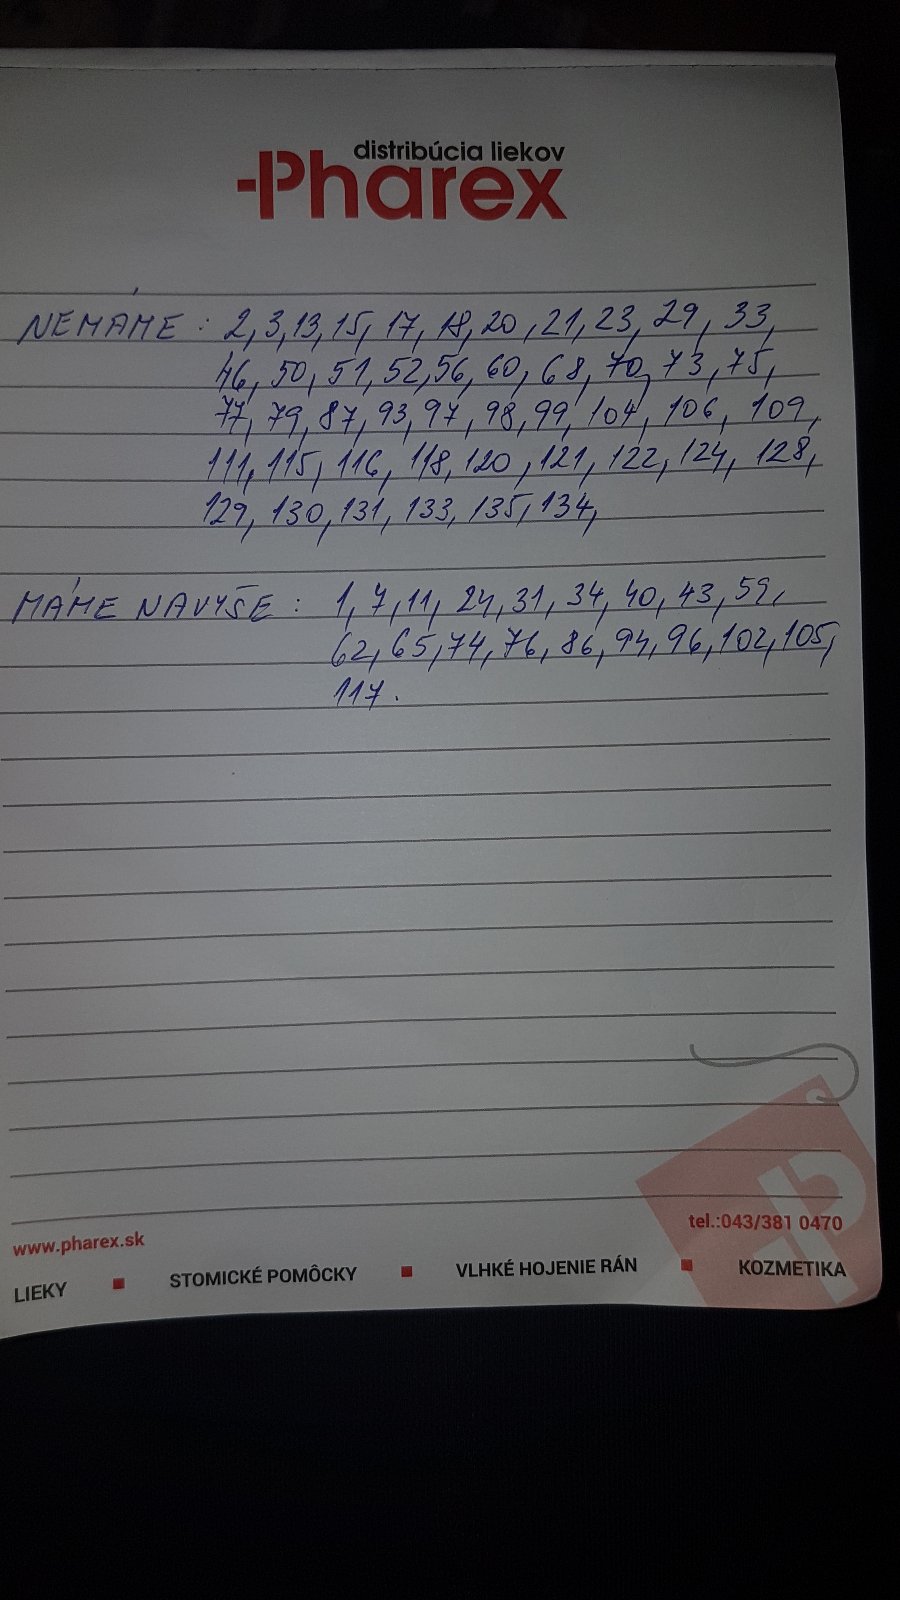 distribúcia liekov
Pharex
NEMÁME : 2, 3, 13, 15, 17, 18, 20, 21, 23, 29, 33,
46, 50, 51, 52, 56, 60, 68, 70, 73, 75,
77, 79, 87, 93, 97, 98, 99, 104, 106, 109,
111, 115, 116, 118, 120, 121, 122, 124, 128,
129, 130, 131, 133, 135, 134,
MÁME NAVYŠE : 1, 7, 11, 24, 31, 34, 40, 43, 59,
62, 65, 74, 76, 86, 94, 96, 102, 105,
117.
www.pharex.sk tel.:043/381 0470
LIEKY ■ STOMICKÉ POMÔCKY ■ VLHKÉ HOJENIE RÁN ■ KOZMETIKA